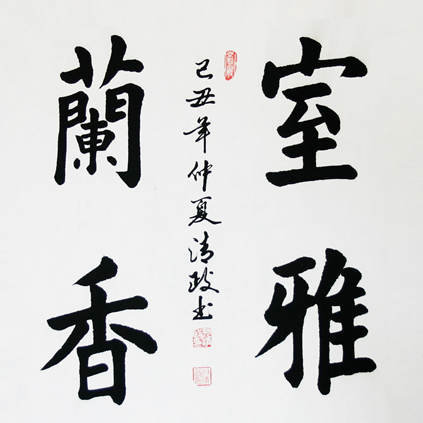 室雅
蘭香
己丑年仲夏清政书